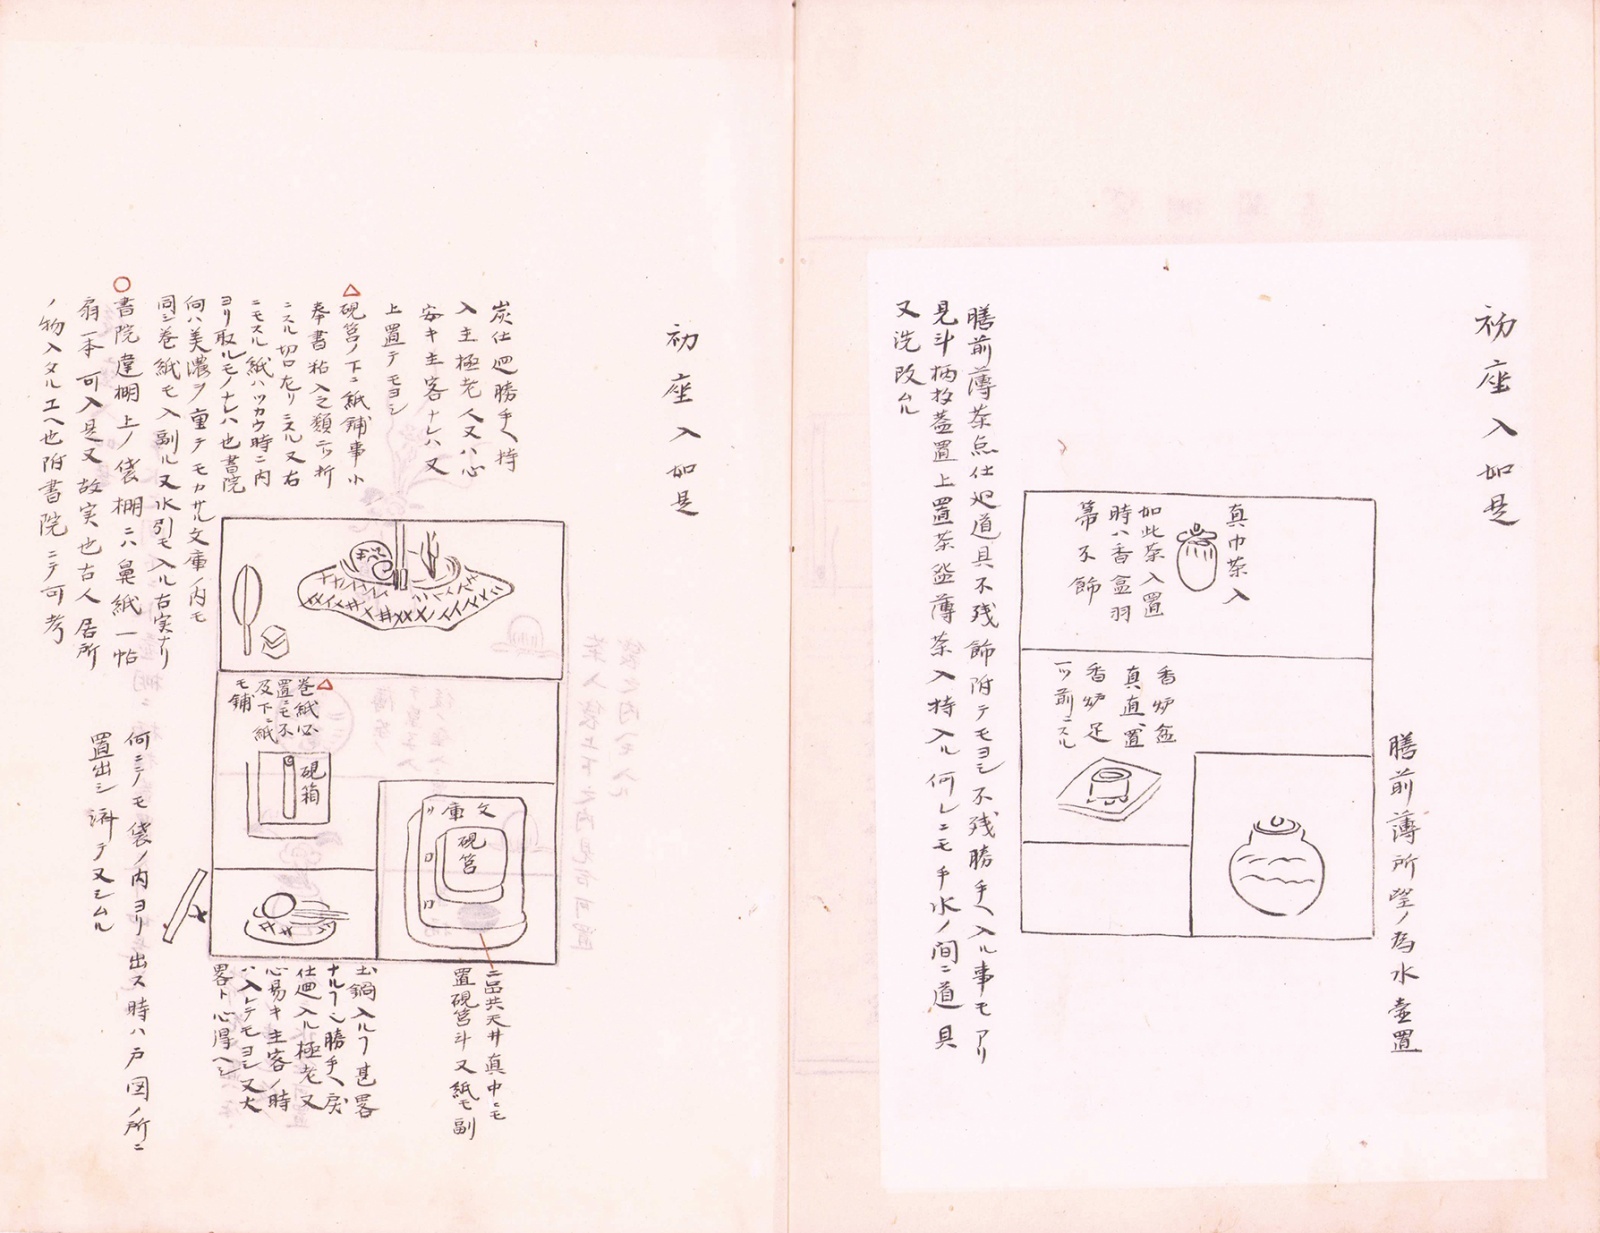 初座入如是
膳前薄所望ノ為水壺置
真巾茶入
如此茶入置
時ハ香盒羽
箒不飾
香炉盆
真直ニ置
香炉足
一ツ前ニスル
膳前薄茶点仕廻道具不残飾附テモヨシ不残勝手ヘ入ル事モアリ
見斗柄杓蓋置上置茶盌薄茶入持入ル何レニモ手水ノ間ニ道具
又洗改ムル
初座入如是
炭仕廻勝手ヘ持
入主極老人又ハ心
安キ主客ナレハ又
上置テモヨシ
△硯筥ノ下ニ紙鋪事小
奉書粘入之類二ツ折
ニスル切口左リニスル又右
ニモスル紙ハツカウ時ニ内
ヨリ取ルモノナレハ也書院
向ハ美濃ヲ重テモカサル文庫ノ内モ
同シ巻紙モ入副ル又水引モ入ル右実ナリ
○書院違棚上ノ袋棚ニハ鼻紙一帖
扇一本可入是又故実也古人居所
ノ物入タルユヘ也附書院ニテ可考
△巻紙必
置ニモ不
及下ニ紙
モ鋪
硯箱
文庫
硯筥
二品共天井真中ニモ
置硯筥斗又紙モ副
土鍋入ルヿ甚畧
ナルヿ也勝手ヘ戻
仕廻入ル極老又
心易キ主客ノ時
ハ入レテモヨシ又大
畧ト心得ヘシ
何ニテモ袋ノ内ヨリ出ス時ハ戸図ノ所ニ
置出シ済テ又シムル